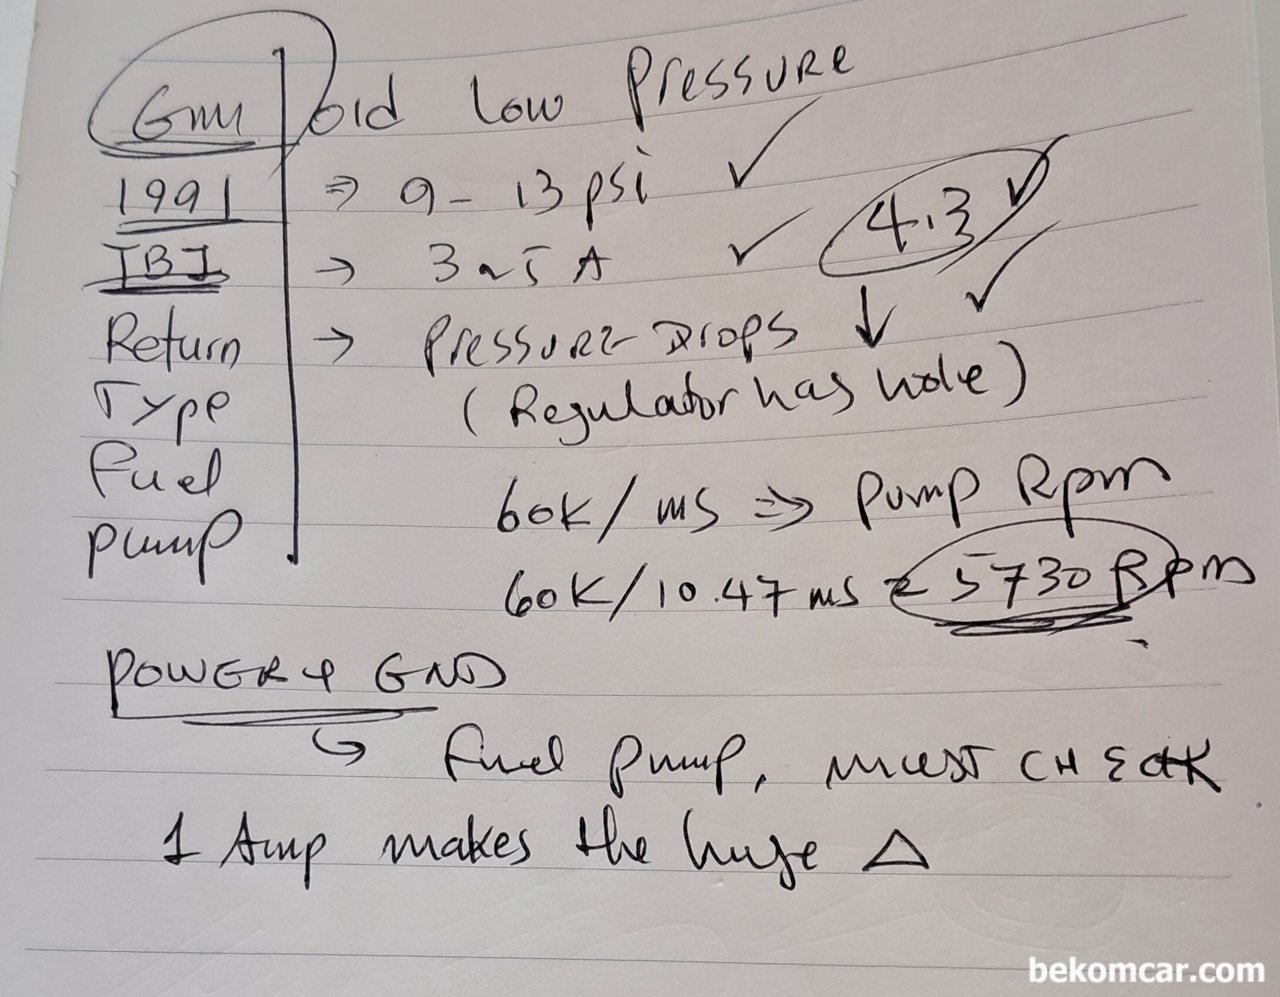 GM | old Low Pressure
1991 ⇒ 9 - 13 psi ✓
TBI → 3 ~ 5 A ✓ 4.3 ✓
Return → Pressure Drops ↓ ✓
Type (Regulator has hole)
Fuel
60K / ms ⇒ Pump Rpm
Pump
60K / 10.47 ms = 5730 Rpm
POWER + GND
↪ Fuel pump, must CHECK
1 Amp makes the huge △
bekomcar.com